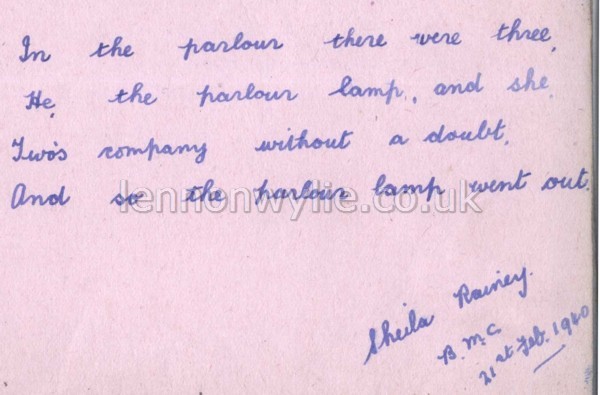 In the parlour there were three,
He, the parlour lamp, and she,
Two's company without a doubt,
And so the parlour lamp went out.
lennonwylie.co.uk
Sheila Rainey.
B.M.C.
21st Feb. 1940